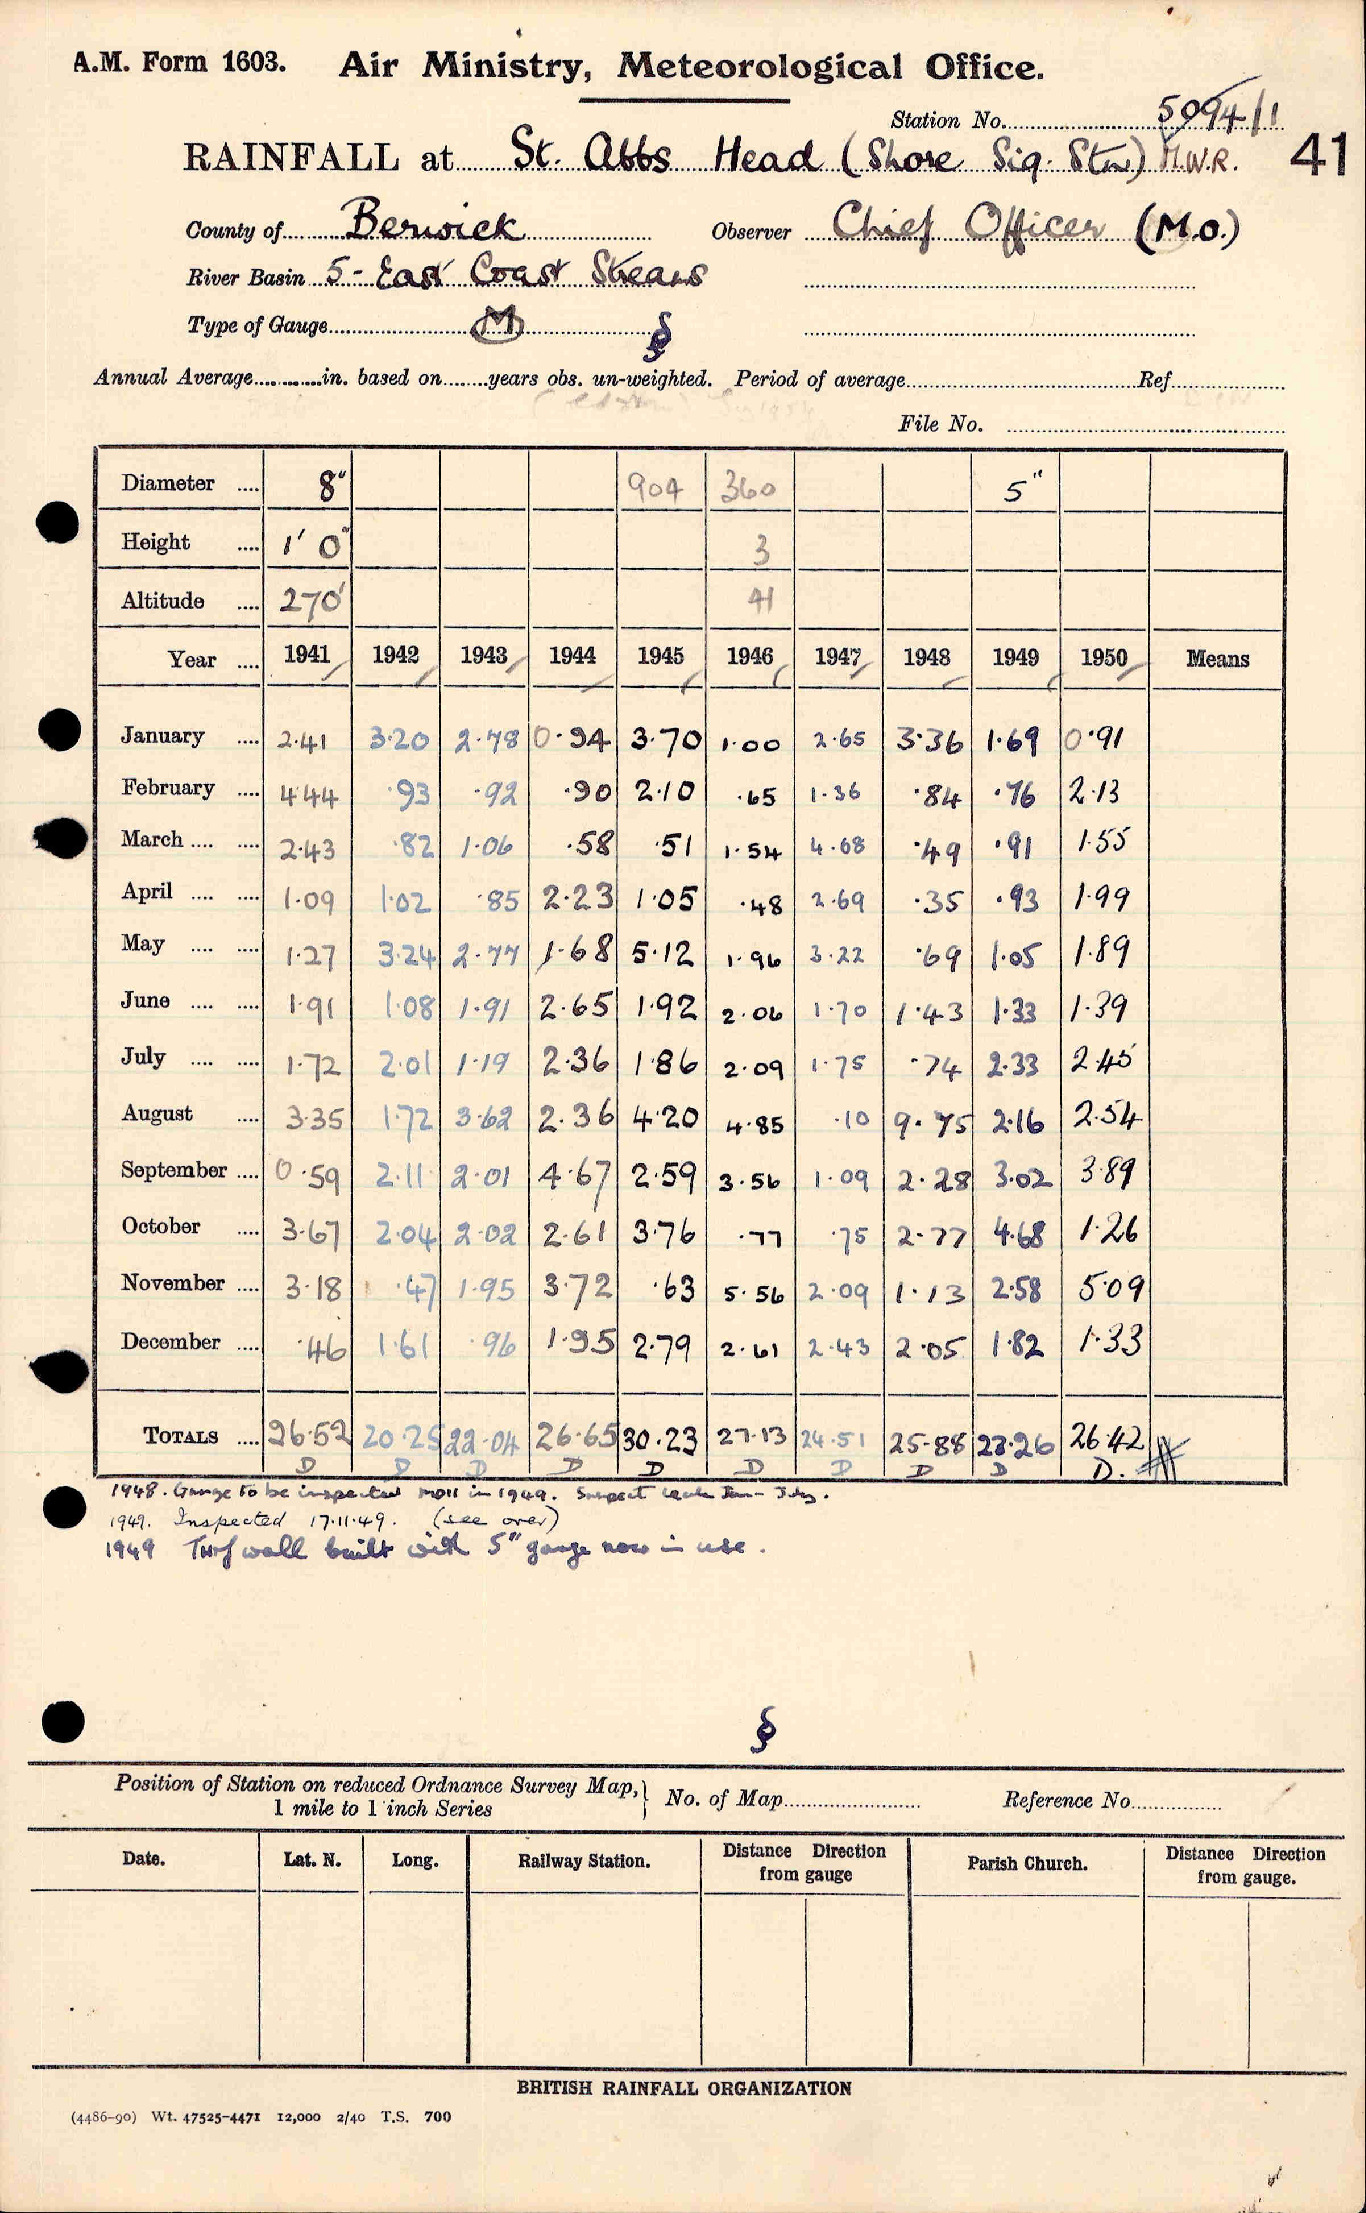 A.M. Form 1603. Air Ministry, Meteorological Office.
Station No. 5094/1
RAINFALL at St. Abbs Head (Shore Sig. Stn) M.W.R. 41
County of Berwick Observer Chief Officer (M.O.)
River Basin 5 - East Coast Streams
Type of Gauge M §
Annual Average in. based on years obs. un-weighted. Period of average Ref
File No.
Diameter 8" 904 360 5"
Height 1' 0" 3
Altitude 270' 41
Year 1941 1942 1943 1944 1945 1946 1947 1948 1949 1950 Means
January 2.41 3.20 2.78 0.94 3.70 1.00 2.65 3.36 1.69 0.91
February 4.44 .93 .92 .90 2.10 .65 1.36 .84 .76 2.13
March 2.43 .82 1.06 .58 .51 1.54 4.68 .49 .91 1.55
April 1.09 1.02 .85 2.23 1.05 .48 2.69 .35 .93 1.99
May 1.27 3.24 2.77 1.68 5.12 1.96 3.22 .69 1.05 1.89
June 1.91 1.08 1.91 2.65 1.92 2.06 1.70 1.43 1.33 1.39
July 1.72 2.01 1.19 2.36 1.86 2.09 1.75 .74 2.33 2.45
August 3.35 1.72 3.62 2.36 4.20 4.85 .10 9.75 2.16 2.54
September 0.59 2.11 2.01 4.67 2.59 3.56 1.09 2.28 3.02 3.89
October 3.67 2.04 2.02 2.61 3.76 .77 .75 2.77 4.68 1.26
November 3.18 .47 1.95 3.72 .63 5.56 2.09 1.13 2.58 5.09
December .46 1.61 .96 1.95 2.79 2.61 2.43 2.05 1.82 1.33
TOTALS 26.52 20.25 22.04 26.65 30.23 27.13 24.51 25.88 23.26 26.42
D D D D D D D D D D.
1948. Gauge to be inspected in 1949. Suspect Leak Jan - July.
1949. Inspected 17.11.49. (see over)
1949 Turf wall built with 5" gauge now in use.
§
Position of Station on reduced Ordnance Survey Map, 1 mile to 1 inch Series No. of Map Reference No.
Date. Lat. N. Long. Railway Station. Distance Direction from gauge Parish Church. Distance Direction from gauge.
BRITISH RAINFALL ORGANIZATION
(4486-90) Wt. 47525-4471 12,000 2/40 T.S. 700